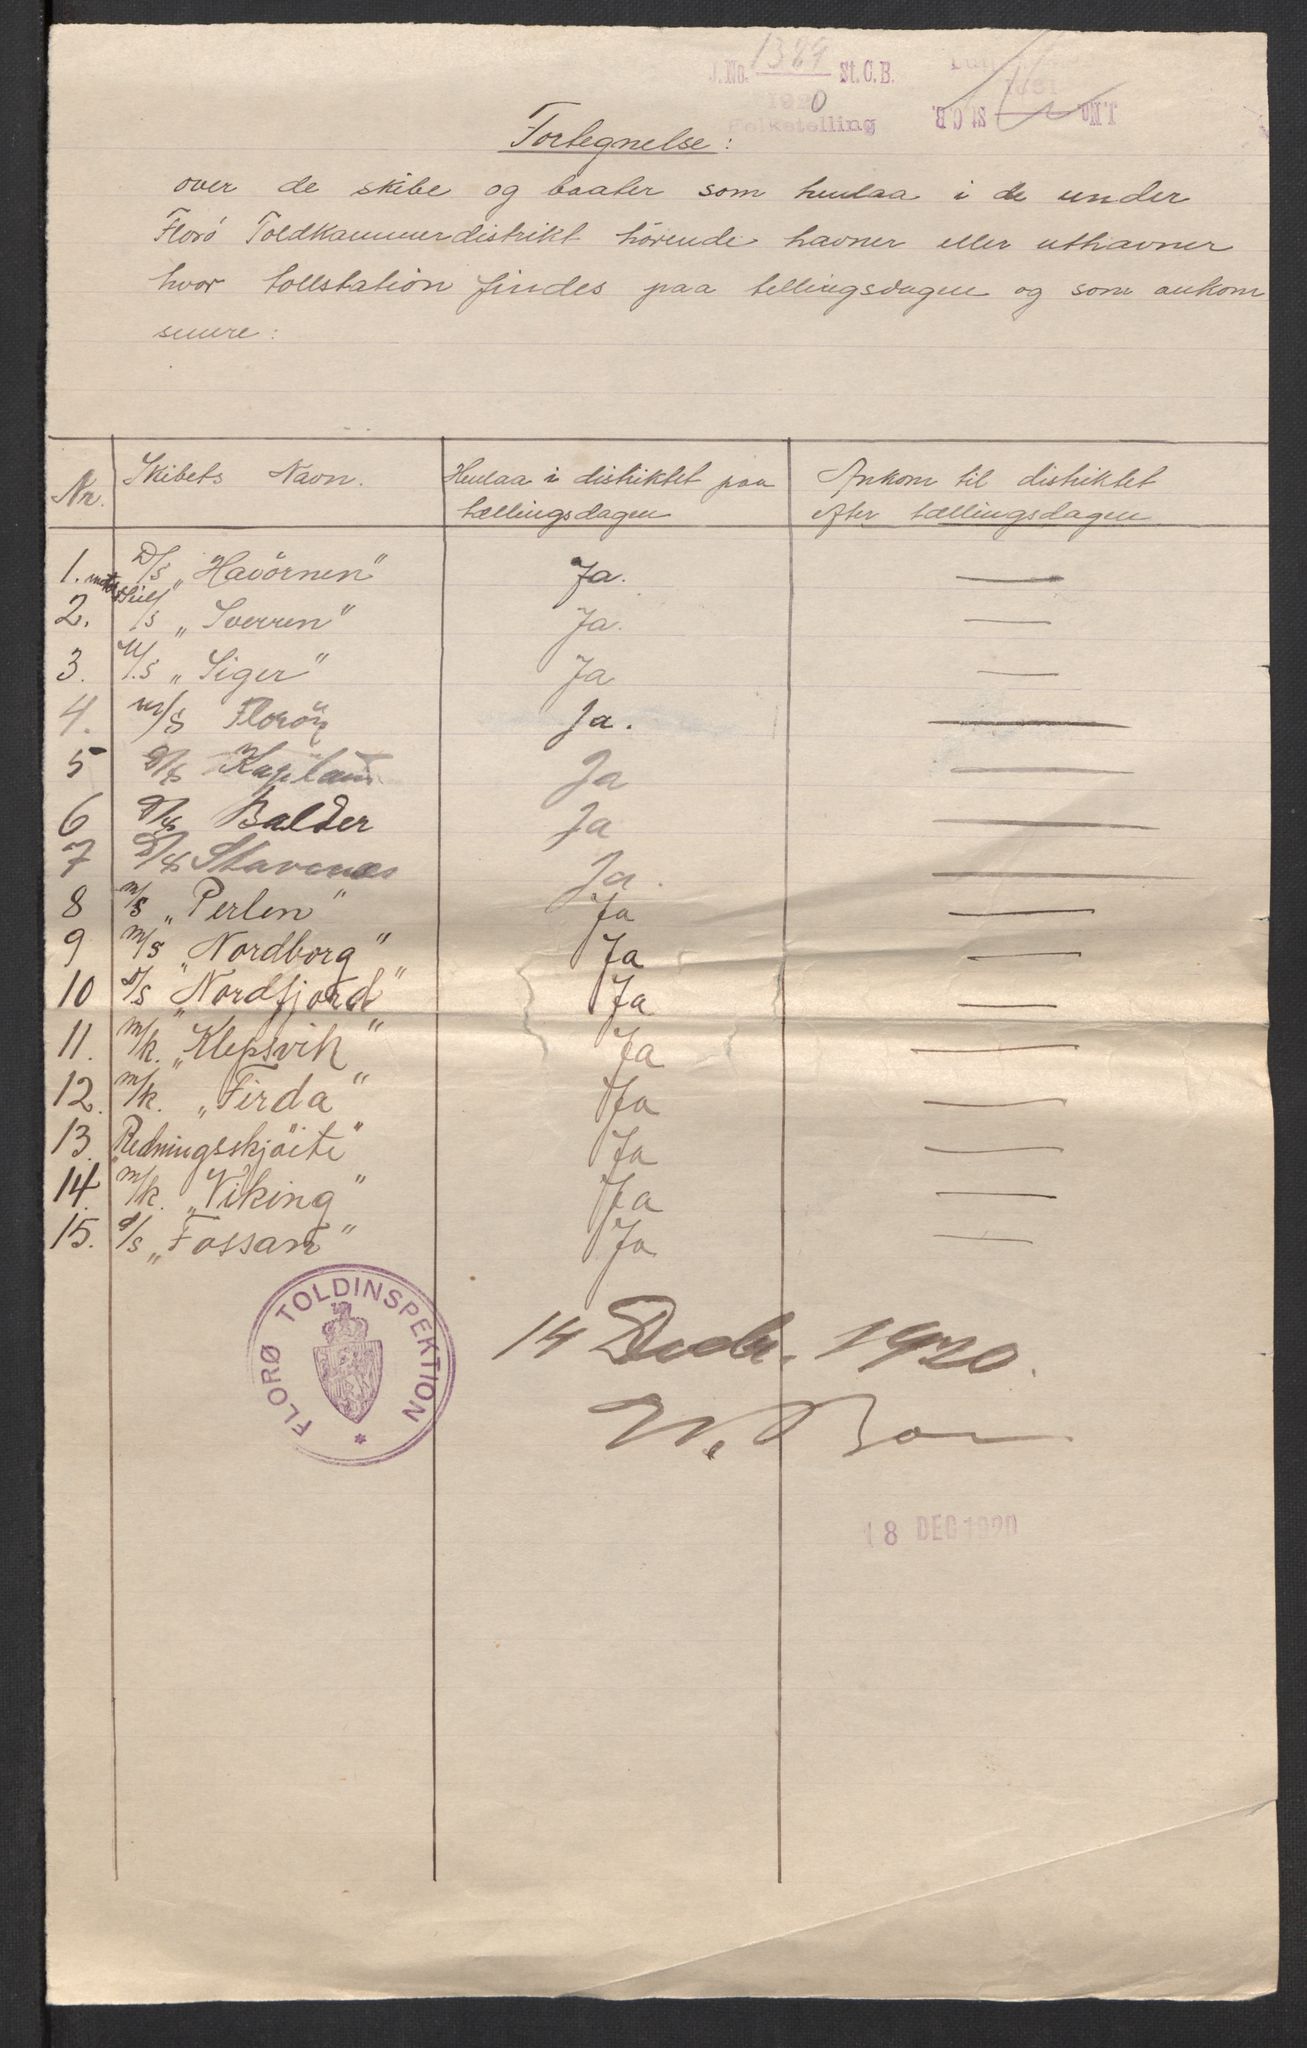 J.No. 1384 St.C.B.
1920
Folketelling
J.No. St.C.B.
Fortegnelse:
over de skibe og baater som henlaa i de under
Florö Toldkammerdistrikt hörende havner eller uthavner
hvor tollstation findes paa tellingsdagen og som ankom
senere:
Nr. Skibets Navn. Henlaa i distriktet paa tællingsdagen Ankom til distriktet efter tællingsdagen
1. D/S „Havörnen" Ja. —
2. /s „Sverren" Ja. —
3. M/S „Siger" Ja —
4. m/s Florö Ja. —
5 D/S Ja —
6 D/S Balder Ja —
7 D/S Stavenes Ja. —
8 m/s „Perlen" Ja —
9 m/s „Nordborg" Ja —
10 d/s „Nordfjord" Ja —
11. m/k. „Klepsvik" Ja —
12. m/k. „Firda" Ja —
13. „Redningsskjöite" Ja —
14. m/k. „Viking" Ja —
15. d/s „Fossan" Ja —
FLORØ TOLDINSPEKTION
14 Decbr. 1920.
18 DEC 1920